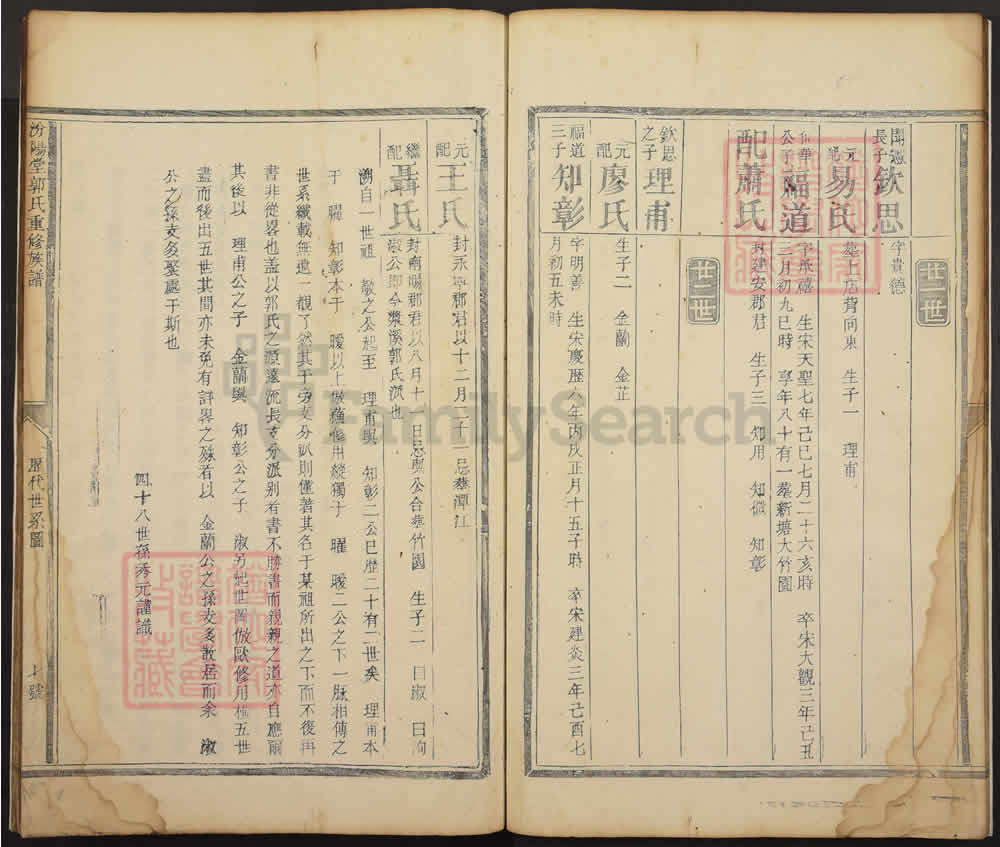 廿一世
長子
欽思
字貴德
元配
易氏
墓上店背向東 生子一 理甫
福道
字承禧 生宋天聖七年己巳七月二十六亥時 卒宋大觀三年己丑
三月初九巳時 享年八十有一葬新塘大竹園
配蕭氏
封建安郡君 生子三 知用 知微 知彰
廿二世
欽思之子
理甫
元配
廖氏
生子二 金蘭 金芷
福道三子
知彰
字明善 生宋慶歷六年丙戌正月十五子時 卒宋建炎三年己酉七
月初五未時
元配
王氏
封永寧郡君以十二月二十一忌葬潭江
繼配
聶氏
封南陽郡君以八月十一日忌與公合葬竹園 生子二 曰淑 曰洵
淑公即今漿溪郭氏派也
溯自一世祖 敬之公起至 理甫與 知彰二公已歷二十有二世矣 理甫本
于 曜 知彰本于 曖以上倣
曜 曖二公之下一脉相傳之
世系纖載無遺一覩了然其于旁支分派則僅著其名于某祖所出之下而不復再
書非從畧也蓋以郭氏之源遠流長支分派别若書不勝書而親親之道亦自應爾
其後以 理甫公之子 金蘭與 知彰公之子 淑另起世圖倣歐修用橫五世
盡而後出五世其間亦未免有詳畧之殊者以 金蘭公之孫支多散居而余 淑
公之孫支多聚處于斯也
四十八世孫秀元謹識
汾陽堂郭氏重修族譜
歷代世系圖
七號
FamilySearch